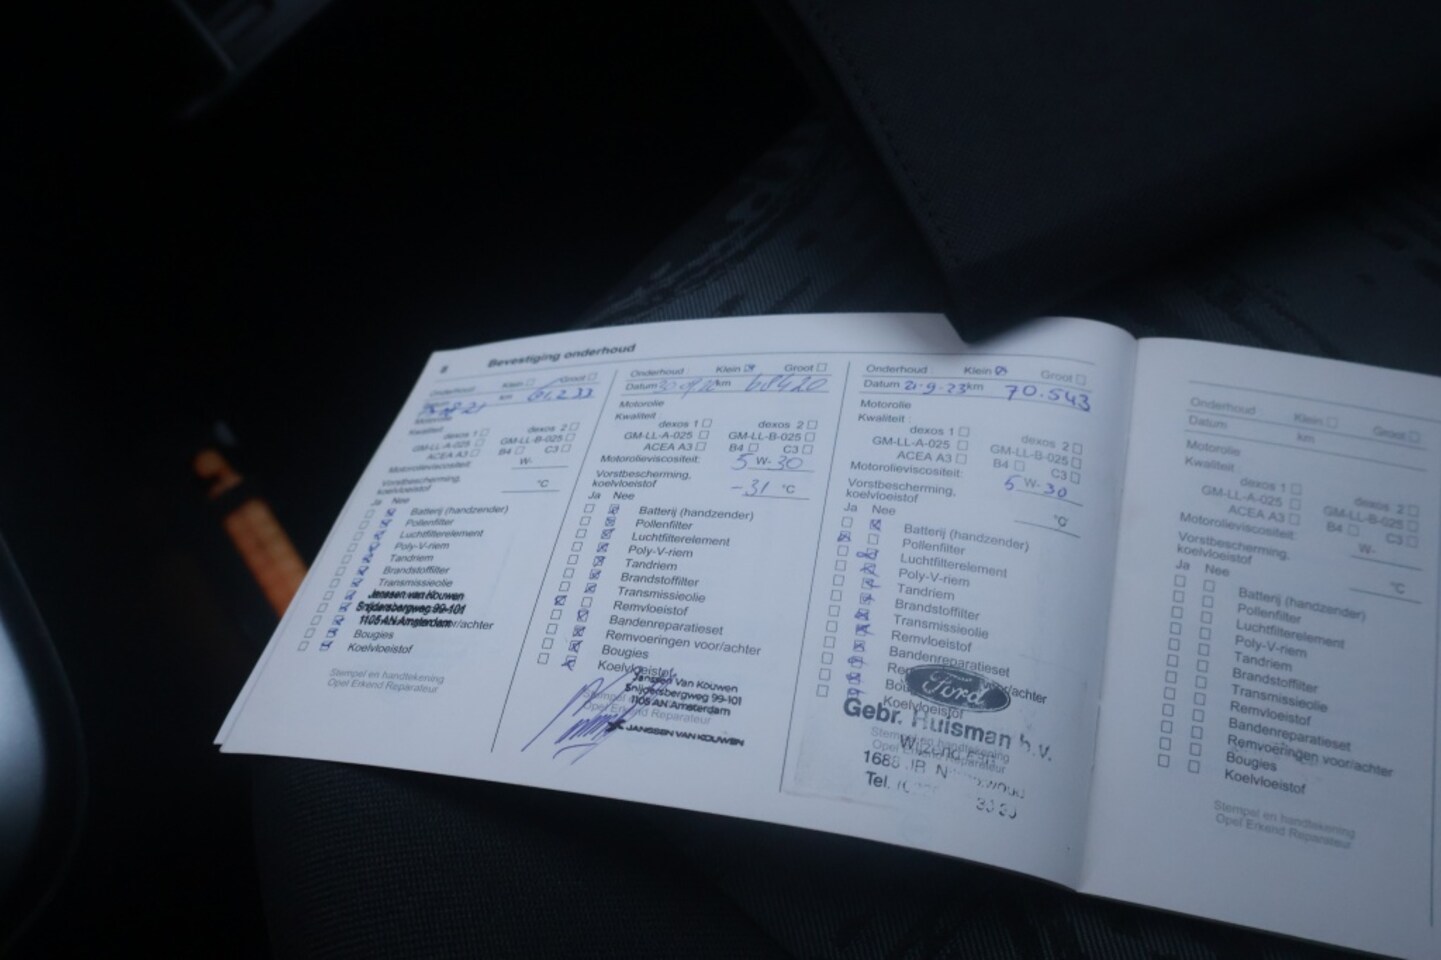 8 Bevestiging onderhoud
Onderhoud Klein Groot
km 61.233
Motorolie
Kwaliteit
dexos 1 dexos 2
GM-LL-A-025 GM-LL-B-025
ACEA A3 B4 C3
Motorolieviscositeit: W-
Vorstbescherming,
koelvloeistof °C
Ja Nee
Batterij (handzender)
Pollenfilter
Luchtfilterelement
Poly-V-riem
Tandriem
Brandstoffilter
Transmissieolie
Janssen van Kouwen
Snijdersbergweg 99-101
1105 AN Amsterdam
Bougies
Koelvloeistof
Stempel en handtekening
Opel Erkend Reparateur
Onderhoud Klein Groot
Datum km 68420
Motorolie
Kwaliteit
dexos 1 dexos 2
GM-LL-A-025 GM-LL-B-025
ACEA A3 B4 C3
Motorolieviscositeit: 5 W- 30
Vorstbescherming,
koelvloeistof -31 °C
Ja Nee
Batterij (handzender)
Pollenfilter
Luchtfilterelement
Poly-V-riem
Tandriem
Brandstoffilter
Transmissieolie
Remvloeistof
Bandenreparatieset
Remvoeringen voor/achter
Bougies
Koelvloeistof
Janssen Van Kouwen
Snijdersbergweg 99-101
1105 AN Amsterdam
Stempel
Opel Erkend Reparateur
JANSSEN VAN KOUWEN
Onderhoud Klein Groot
Datum 21-9-23 km 70.543
Motorolie
Kwaliteit
dexos 1 dexos 2
GM-LL-A-025 GM-LL-B-025
ACEA A3 B4 C3
Motorolieviscositeit: 5 W- 30
Vorstbescherming,
koelvloeistof °C
Ja Nee
Batterij (handzender)
Pollenfilter
Luchtfilterelement
Poly-V-riem
Tandriem
Brandstoffilter
Transmissieolie
Remvloeistof
Bandenreparatieset
Koelvloeistof
Ford
Gebr. Huisman b.v.
Stempel en handtekening
Opel Erkend Reparateur
Tel.
Onderhoud Klein Groot
Datum km
Motorolie
Kwaliteit
dexos 1 dexos 2
GM-LL-A-025 GM-LL-B-025
ACEA A3 B4 C3
Motorolieviscositeit: W-
Vorstbescherming,
koelvloeistof °C
Ja Nee
Batterij (handzender)
Pollenfilter
Luchtfilterelement
Poly-V-riem
Tandriem
Brandstoffilter
Transmissieolie
Remvloeistof
Bandenreparatieset
Remvoeringen voor/achter
Bougies
Koelvloeistof
Stempel en handtekening
Opel Erkend Reparateur